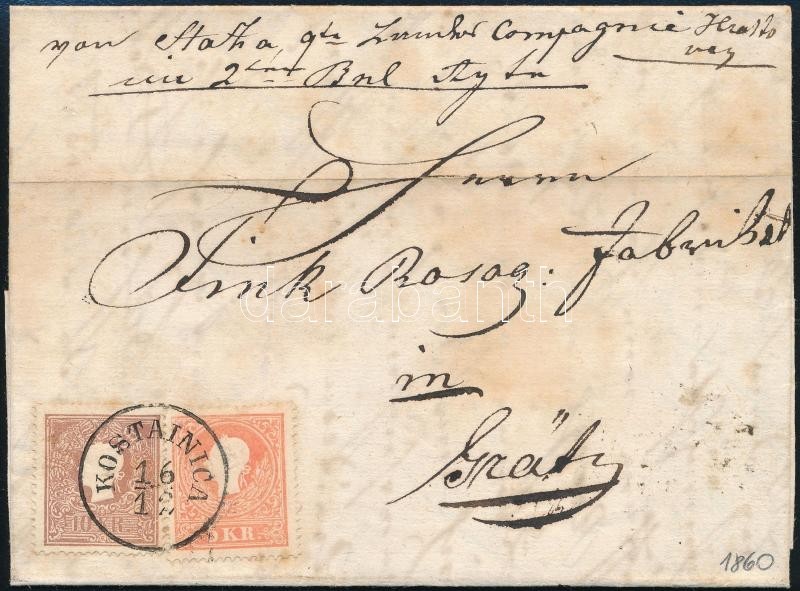 von 9te Compagnie
im 2ten Bnl
Herrn
Fink Rosog: Fabrikat
in
Grätz
KOSTAINICA
16
12
10 KR
5 KR
1860
darabanth